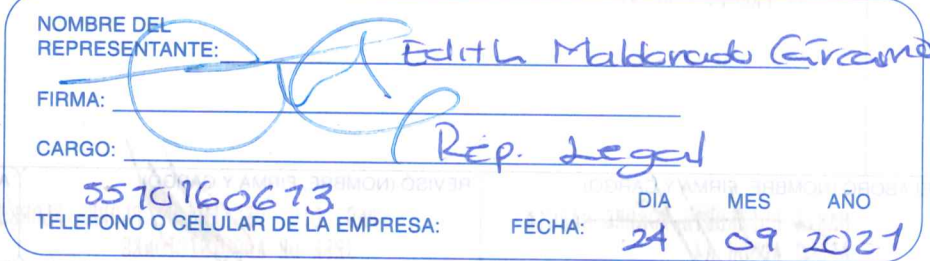 NOMBRE DEL
REPRESENTANTE: Edith Maldonado Cárcamo
FIRMA:
CARGO: Rep. Legal
5510160613
TELEFONO O CELULAR DE LA EMPRESA:
FECHA:
DIA MES AÑO
24 09 2021